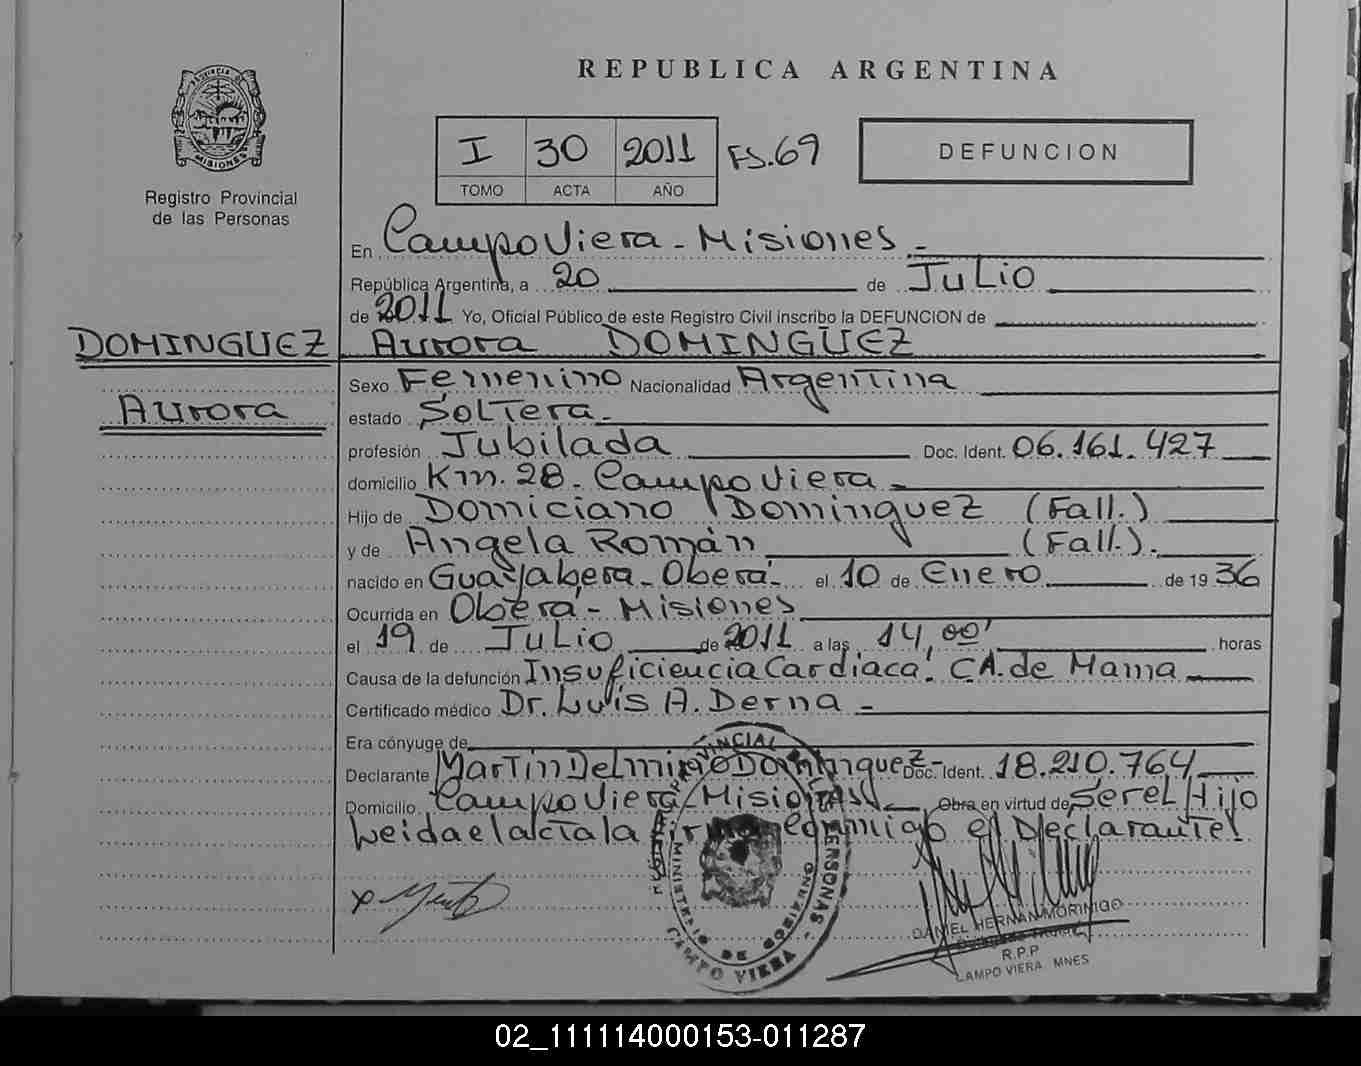 REPUBLICA ARGENTINA
PROVINCIA DE MISIONES
Registro Provincial
de las Personas
I 30 2011 FS.69
TOMO ACTA AÑO
DEFUNCION
En Campo Viera - Misiones -
República Argentina, a 20 de Julio
de 2011 Yo, Oficial Público de este Registro Civil inscribo la DEFUNCION de
DOMINGUEZ Aurora DOMINGUEZ
Sexo Femenino Nacionalidad Argentina
Aurora
estado Soltera -
profesión Jubilada Doc. Ident. 06.161.427
domicilio Km. 28 - Campo Viera -
Hijo de Domiciano Dominguez (Fall.)
y de Angela Román (Fall.).
nacido en Guayabera - Oberá - el 10 de Enero de 1936
Ocurrida en Oberá - Misiones
el 19 de Julio de 2011 a las 14,00' horas
Causa de la defunción Insuficiencia Cardiaca. CA. de Mama
Certificado médico Dr. Luis A. Derna -
Era cónyuge de
Declarante Martin Delmiro Dominguez - Doc. Ident. 18.210.764
Domicilio Campo Viera - Misiones Obra en virtud de Ser el Hijo
Leida el acta la firma conmigo el Declarante.
x
REGISTRO PROVINCIAL DE LAS PERSONAS
MINISTERIO DE GOBIERNO
CAMPO VIERA
DANIEL HERNAN MORINIGO
R.P.P
CAMPO VIERA MNES
02_111114000153-011287